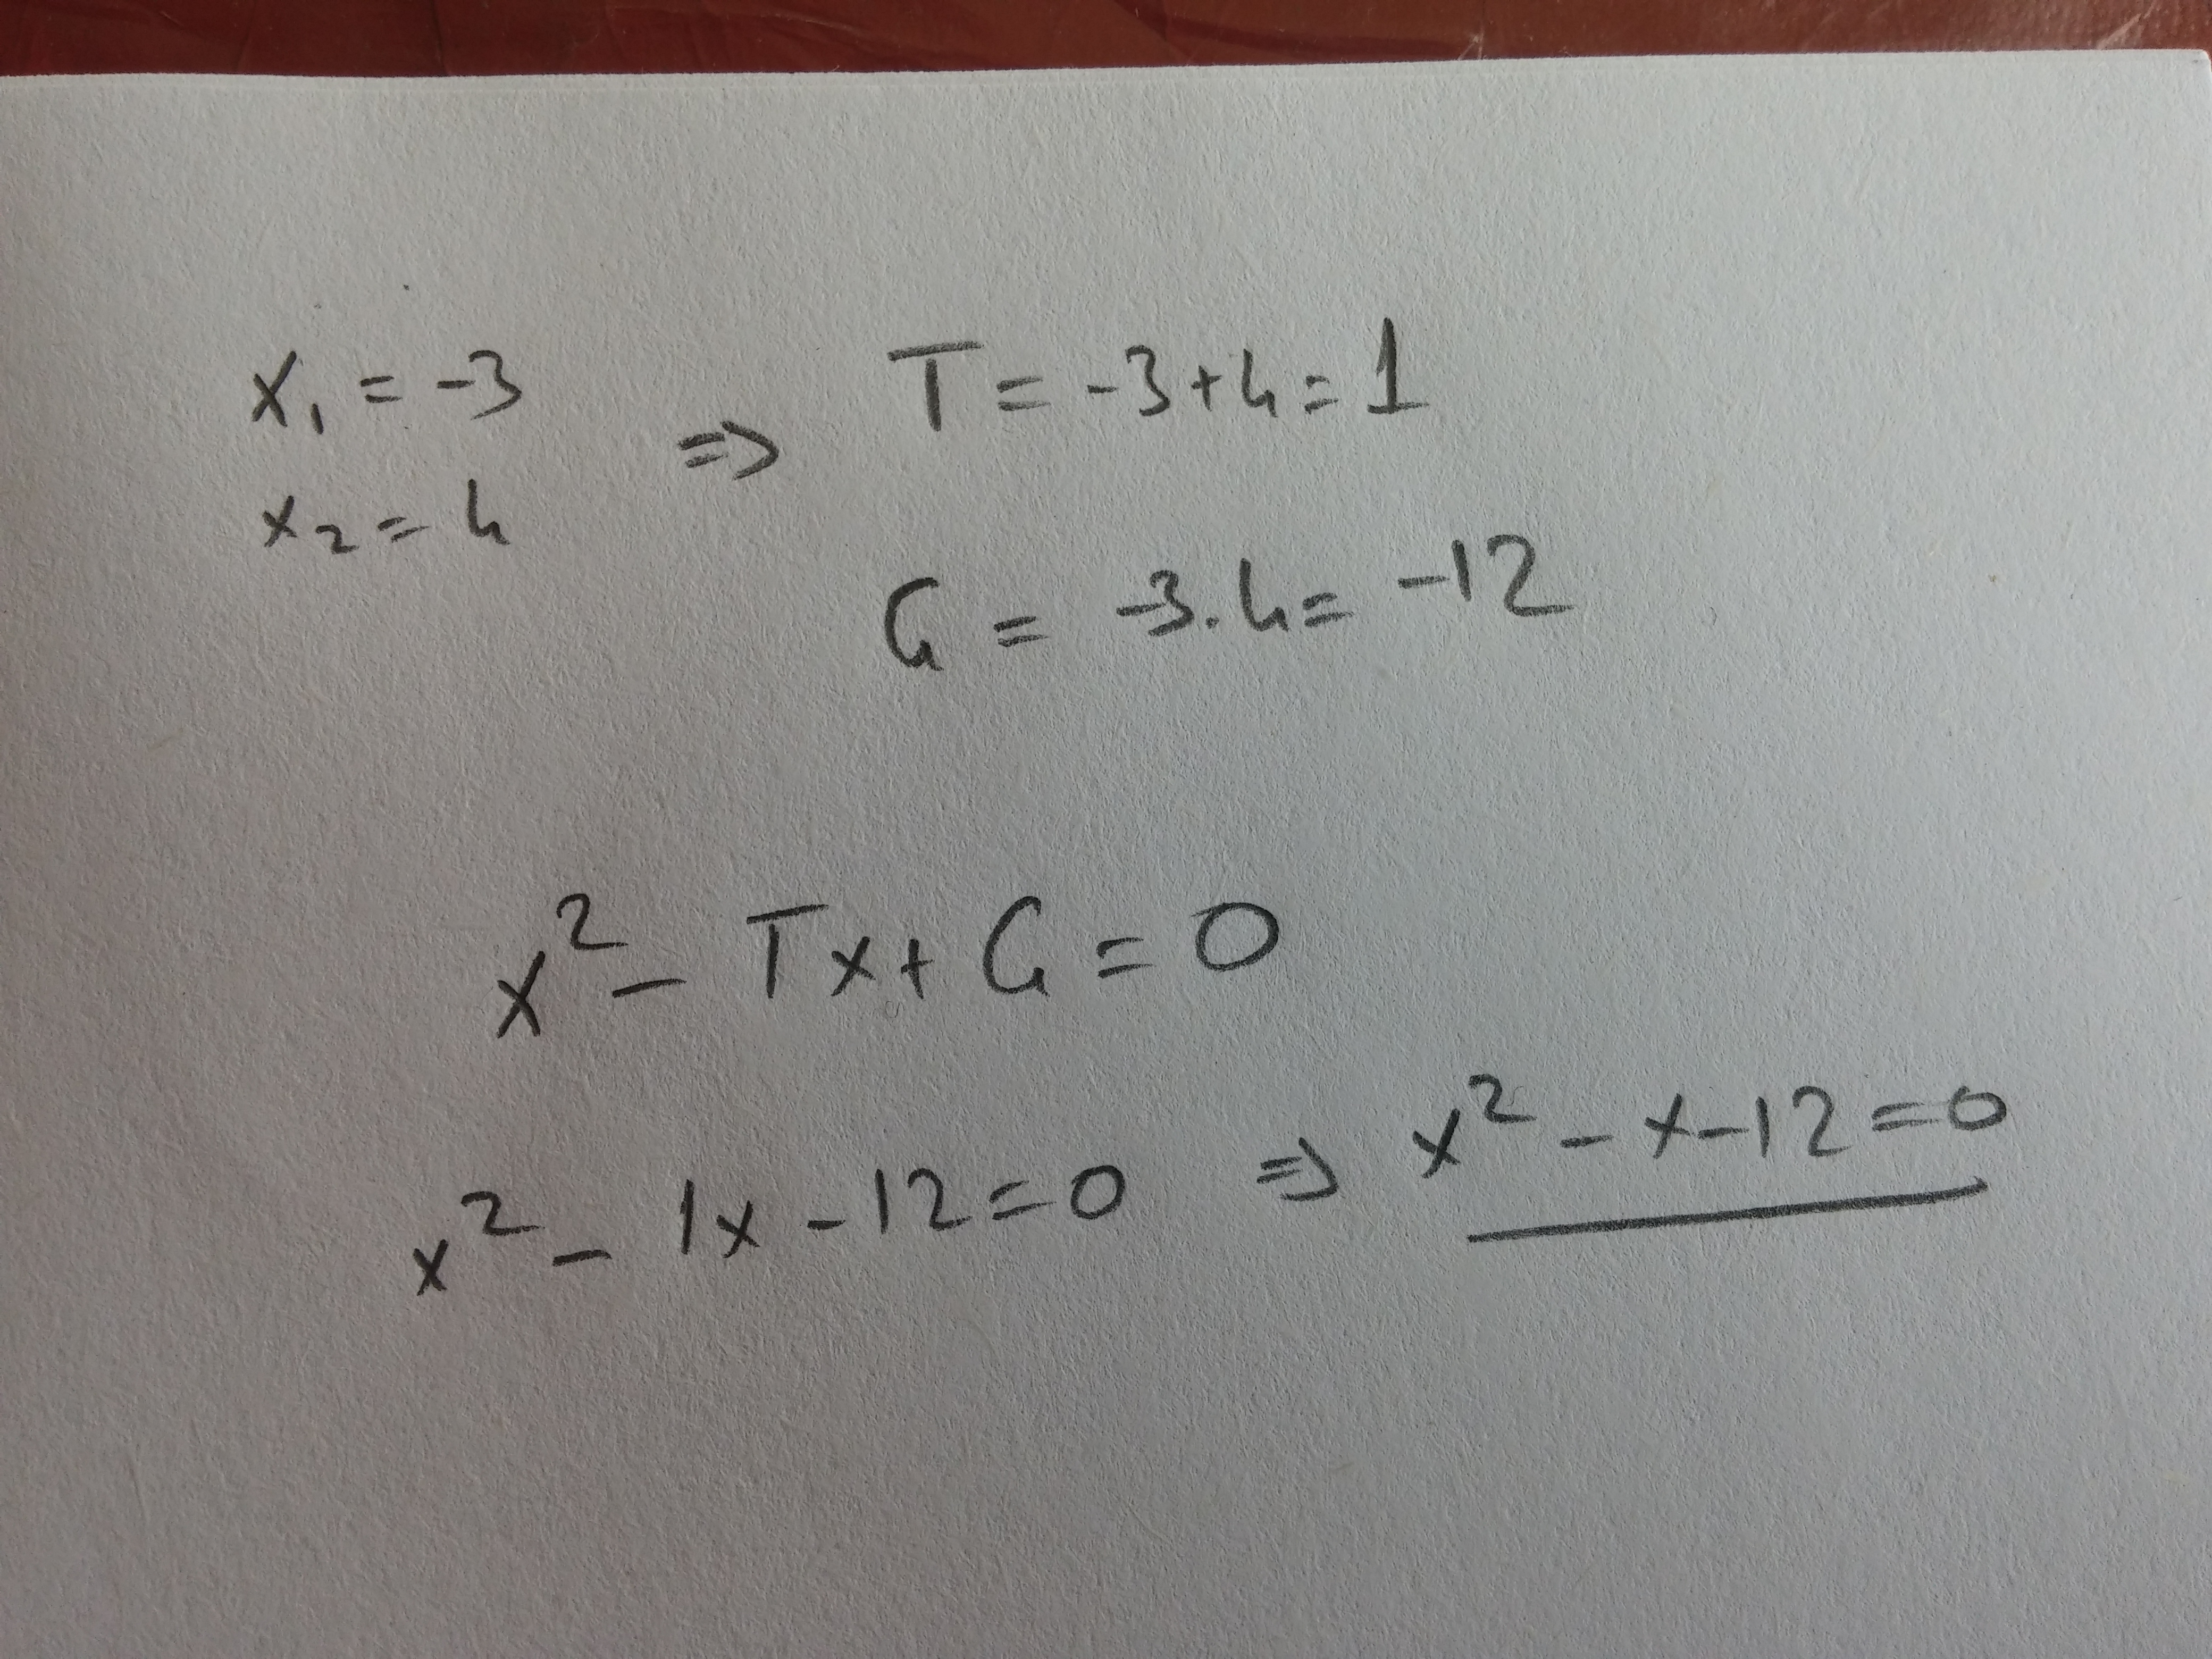 x₁ = -3
x₂ = 4
=> T = -3+4 = 1
Ç = -3.4 = -12
x² - Tx + Ç = 0
x² - 1x - 12 = 0 => x² - x - 12 = 0